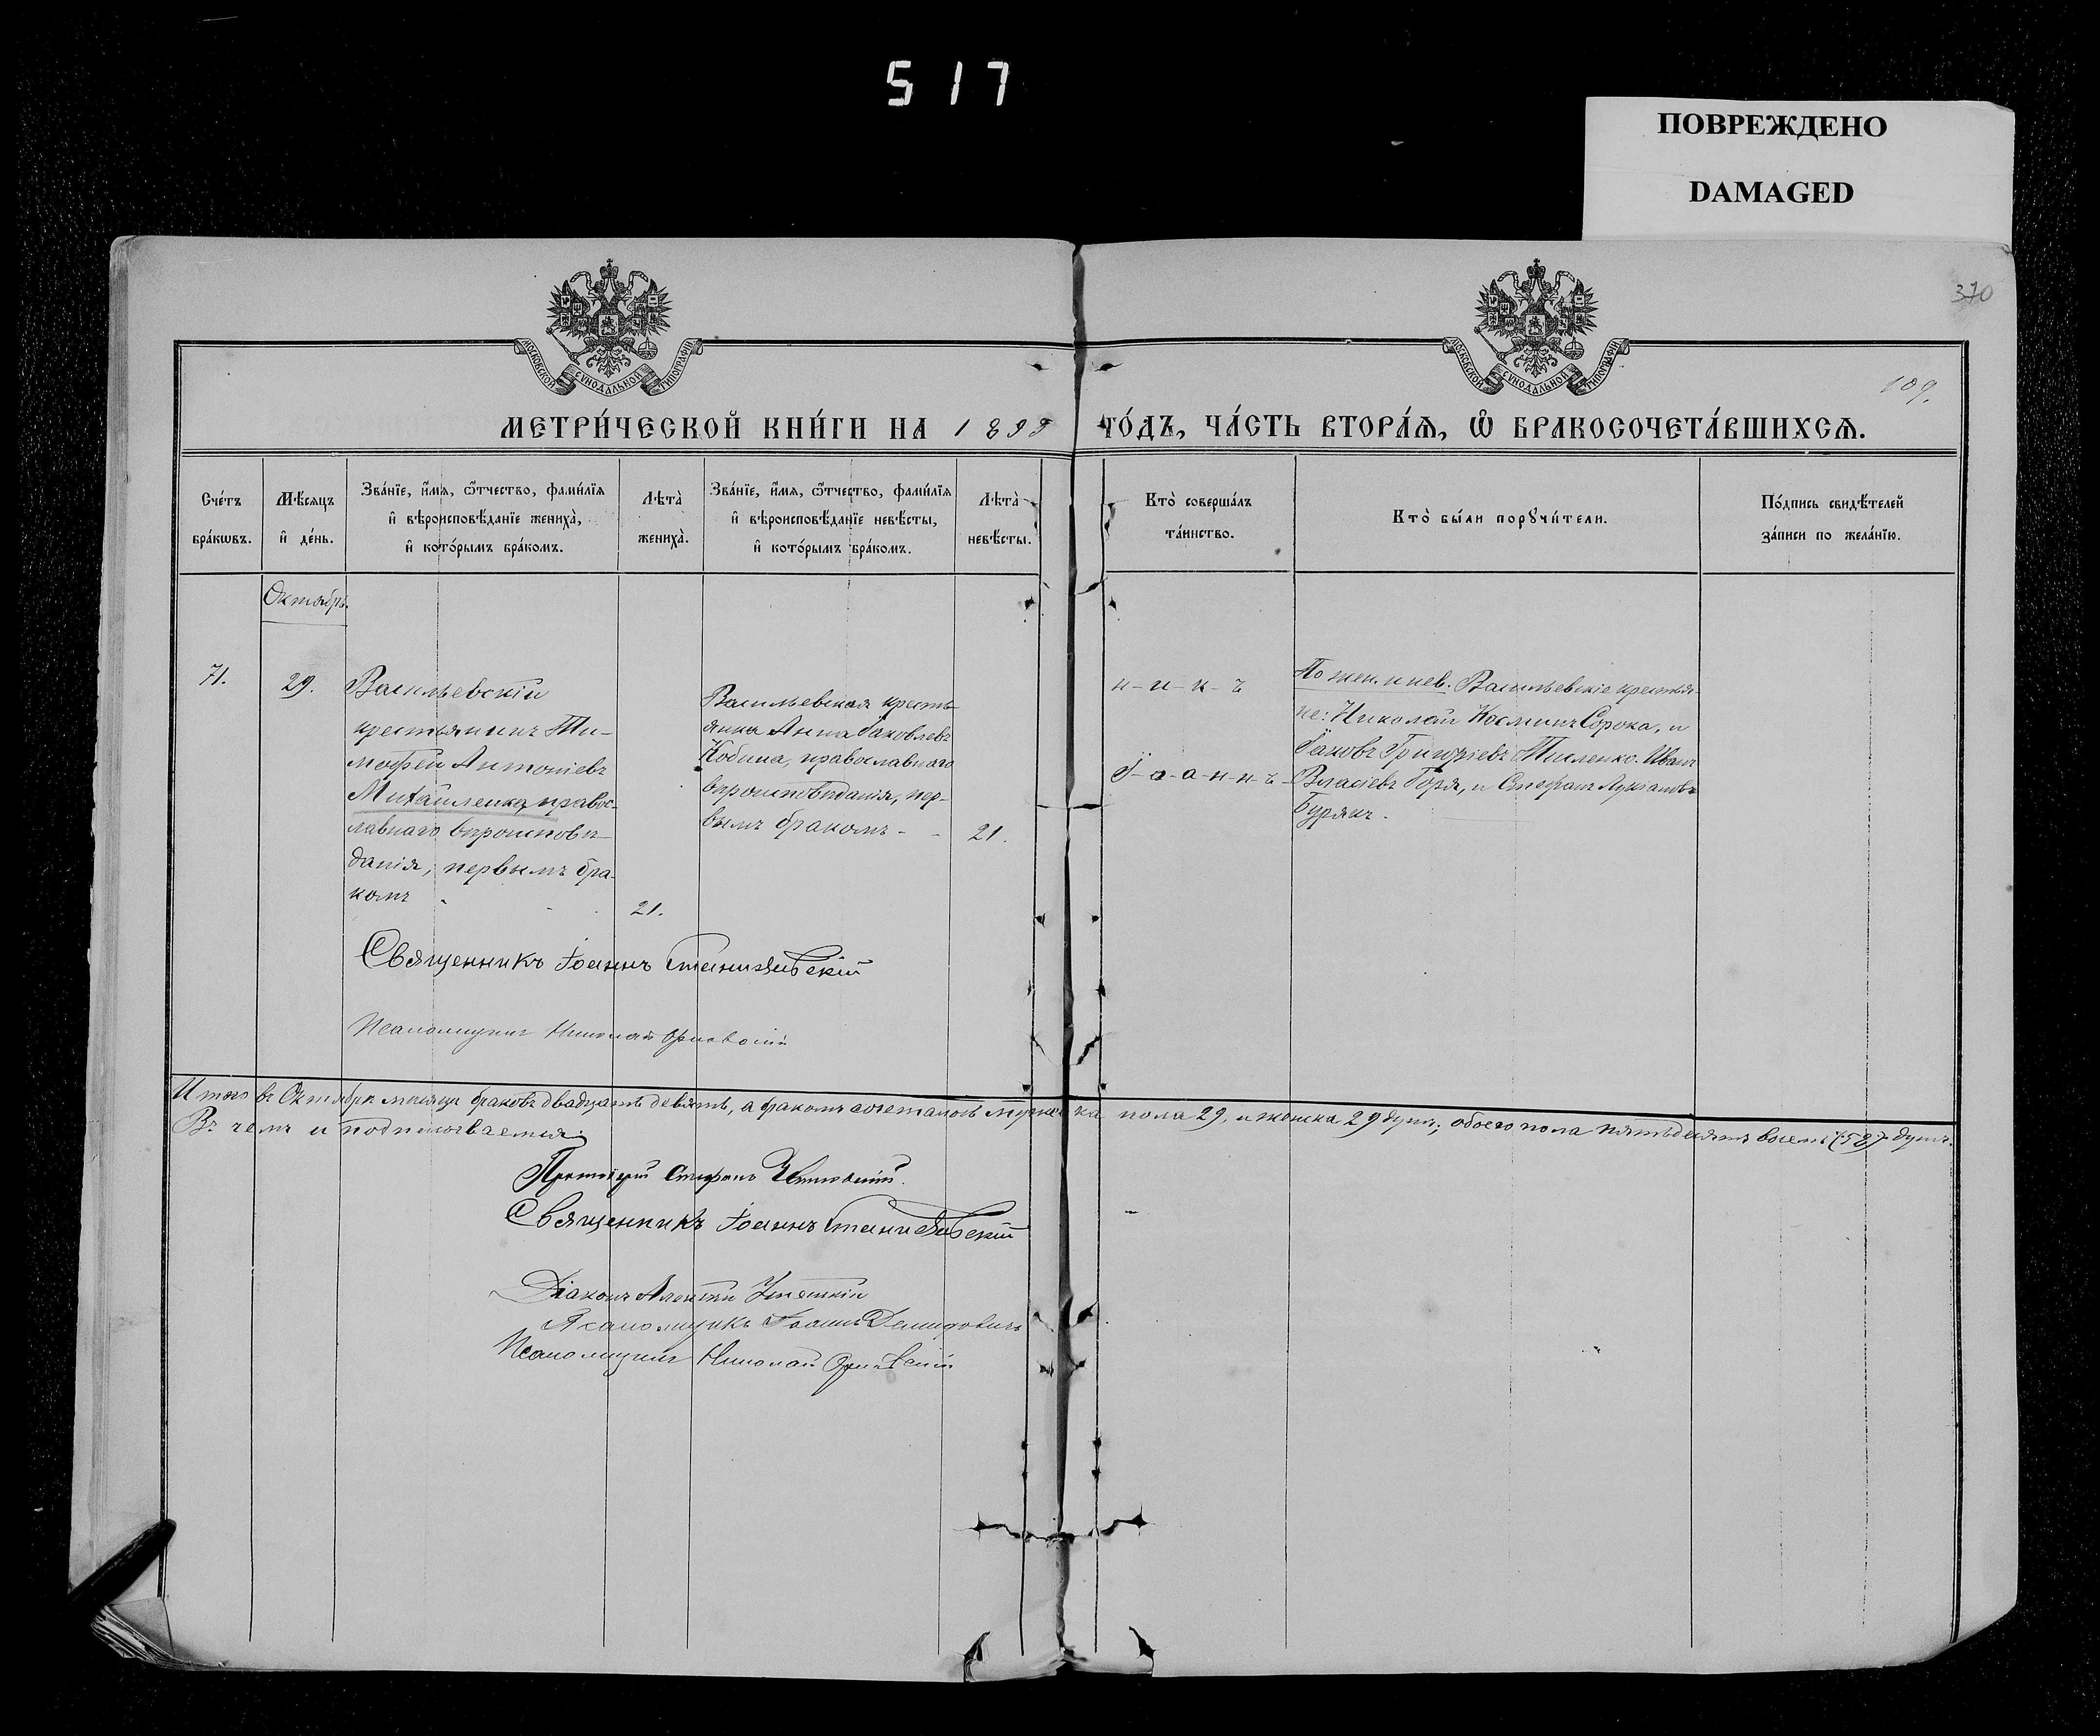 517
ПОВРЕЖДЕНО
DAMAGED
370
109.
МОСКОВСКОЙ СѴНОДАЛЬНОЙ ТИПОГРАФІИ
МОСКОВСКОЙ СѴНОДАЛЬНОЙ ТИПОГРАФІИ
МЕТРИ́ЧЕСКОЙ КНИ́ГИ НА 1899 ГО́ДЪ, ЧА́СТЬ ВТОРА́Ѧ, Ѡ҆ БРАКОСОЧЕТА́ВШИХСѦ.
Сче́тъ
бра́кѡвъ.
Мѣ́сѧцъ
и҆ де́нь.
Зва́нїе, и҆́мѧ, ѻ҆́тчество, фами́лїѧ
и҆ вѣроисповѣ́данїе жениха̀,
и҆ кото́рымъ бра́комъ.
Лѣта̀
жениха̀.
Зва́нїе, и҆́мѧ, ѻ҆́тчество, фами́лїѧ
и҆ вѣроисповѣ́данїе невѣ́сты,
и҆ кото́рымъ бра́комъ.
Лѣта̀
невѣ́сты.
Кто̀ соверша́лъ
та́инство.
Кто̀ бы́ли порꙋчи́тели.
По́дпись свидѣ́телей
за́писи по жела́нїю.
Октябрь.
71.
29.
Васильевскій
крестьянинъ Ти-
мофей Антоніевъ
Михайленко, правос-
лавнаго вѣроисповѣ-
данія, первымъ бра-
комъ
21.
Васильевская кресть-
янка Анна Іаковлева
Кобина, православнаго
вѣроисповѣданія, пер-
вымъ бракомъ - -
21.
н-и-к-ъ
І-о-а-н-н-ъ
По жен. и нев. Васильевскіе крестья-
не: Николай Косминъ Сорока, и
Іаковъ Григоріевъ Тисленко. Иванъ
Власіевъ Горя, и Стефанъ Лукіановъ
Бурякъ.
Священникъ Іоаннъ Станиславскій
Псаломщикъ Николай Орловскій
Итого въ Октябрѣ мѣсяцѣ браковъ двадцать девять, а бракомъ сочеталось мужеска пола 29, и женска 29 душъ; обоего пола пятьдесятъ восемь (58) душъ.
Въ чемъ и подписываемся:
Протоіерей Стефанъ
Священникъ Іоаннъ Станиславскій
Діаконъ Алексѣй
Псаломщикъ Іоаннъ Демидовичъ
Псаломщикъ Николай Орловскій